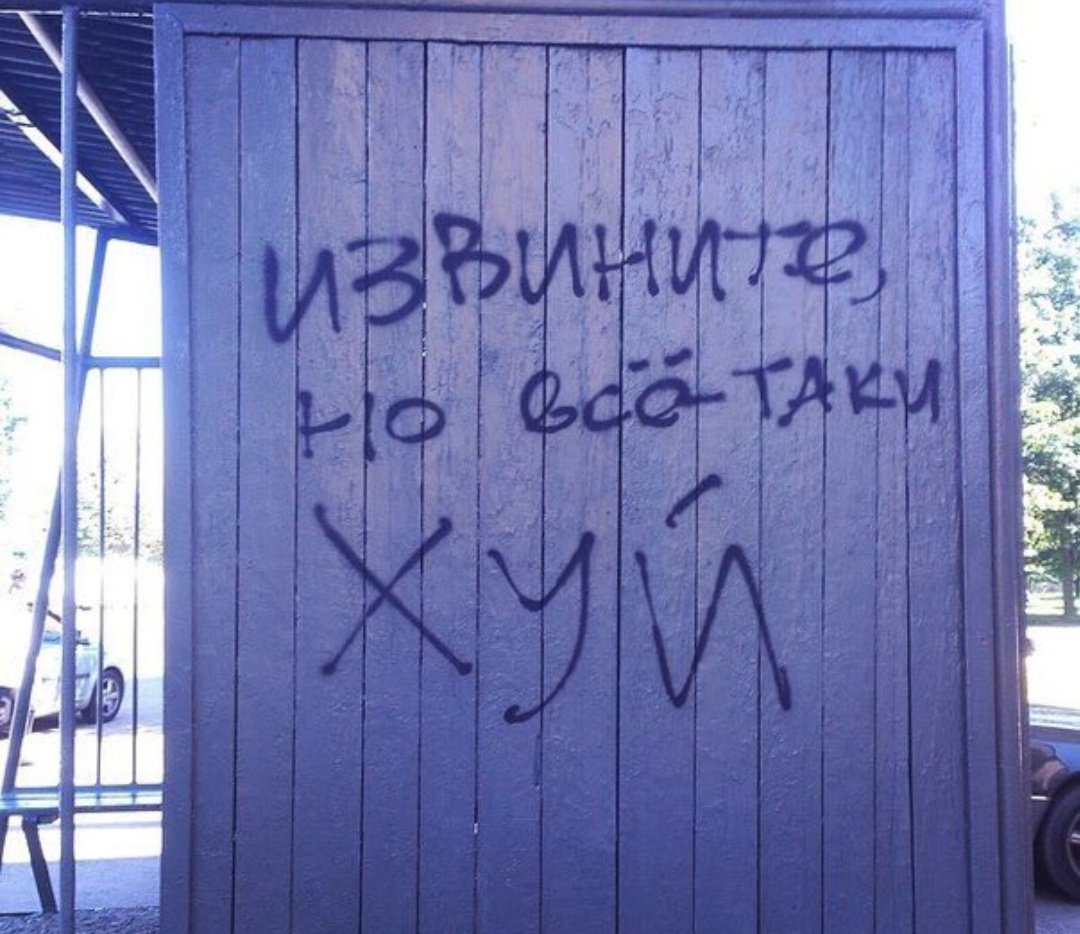 извините,
но всё-таки
хуй